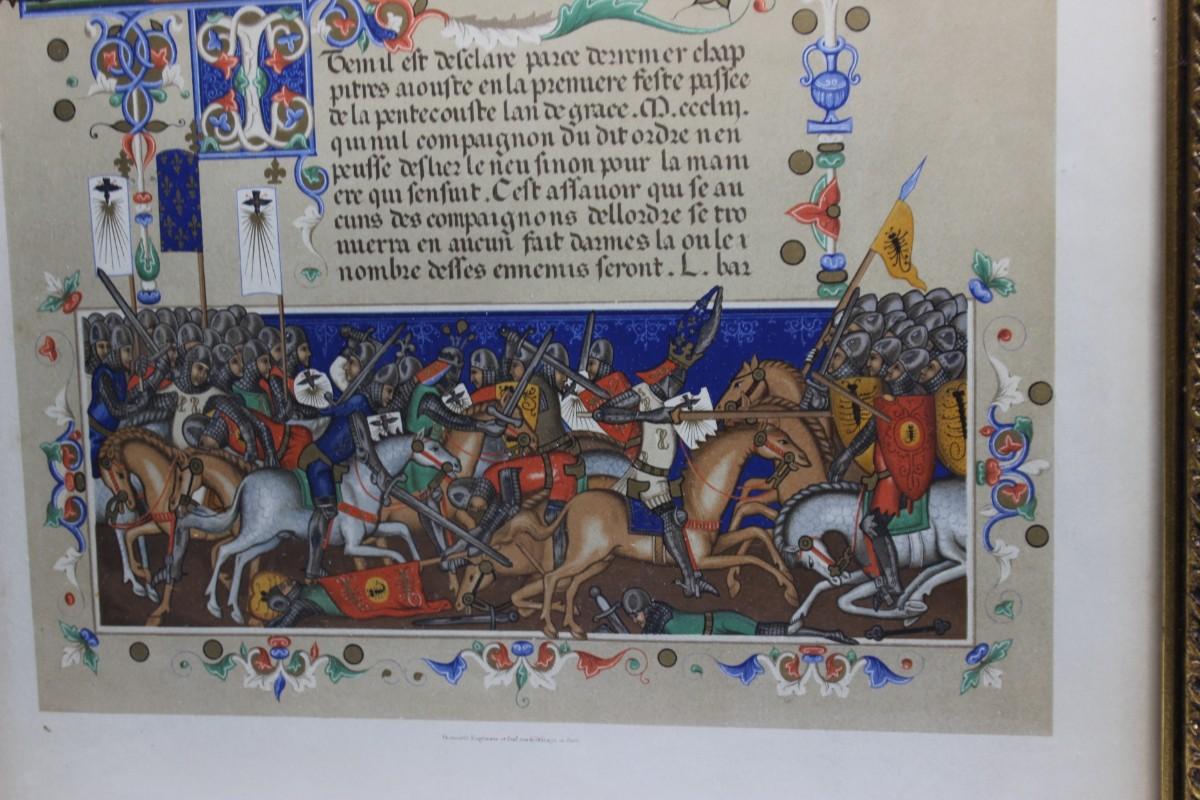 Item il est desclare parce derremier chap
pitres aiouste en la premiere feste passee
de la pentecouste lan de grace. M. ccclııȷ.
qu nul compaignon du dit ordre nen
peusse deslier le neu sinon pour la mani
ere qui sensuit. Cest assavoir qui se au
cuns des compaignons dellordre se tro
uuerra en aucun fait darmes la ou le ı
nombre desses ennemis seront. L. bar